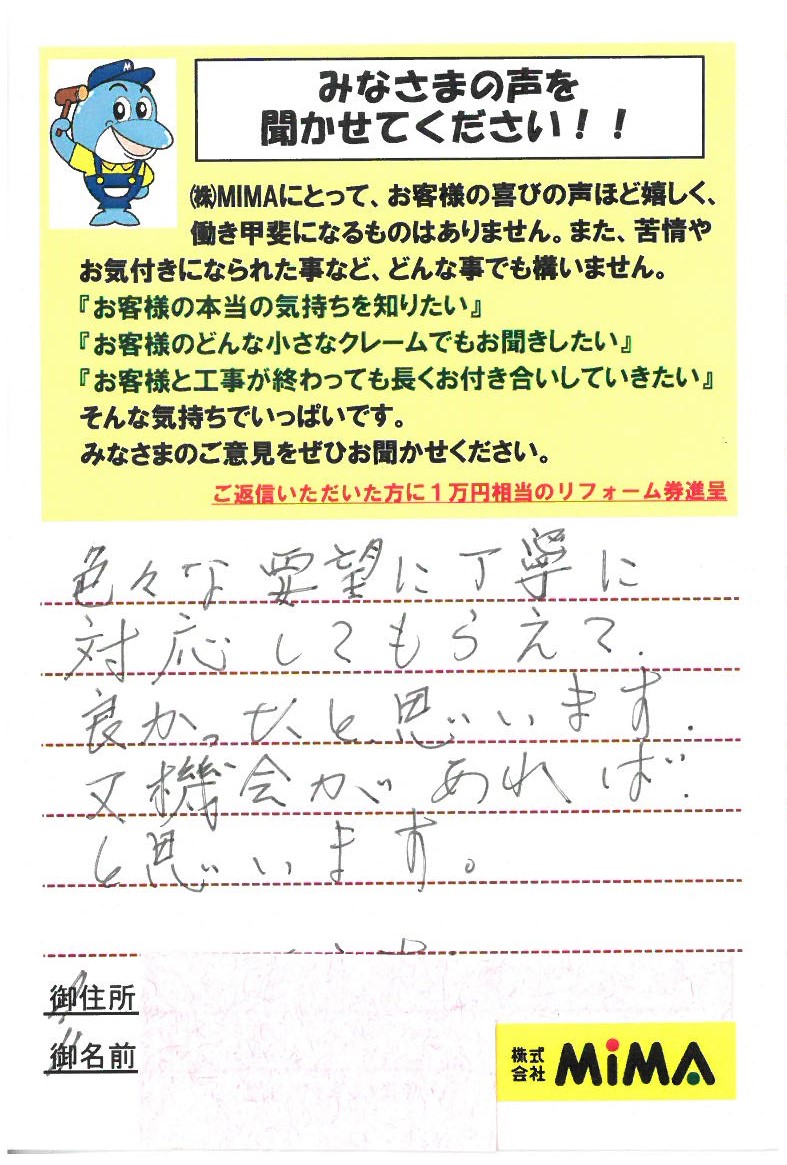 みなさまの声を
聞かせてください！！
㈱MIMAにとって、お客様の喜びの声ほど嬉しく、
働き甲斐になるものはありません。また、苦情や
お気付きになられた事など、どんな事でも構いません。
『お客様の本当の気持ちを知りたい』
『お客様のどんな小さなクレームでもお聞きしたい』
『お客様と工事が終わっても長くお付き合いしていきたい』
そんな気持ちでいっぱいです。
みなさまのご意見をぜひお聞かせください。
ご返信いただいた方に１万円相当のリフォーム券進呈
色々な要望に丁寧に
対応してもらえて.
良かったと思います.
又機会があれば.
と思います。
御住所
御名前
株式会社 MiMA